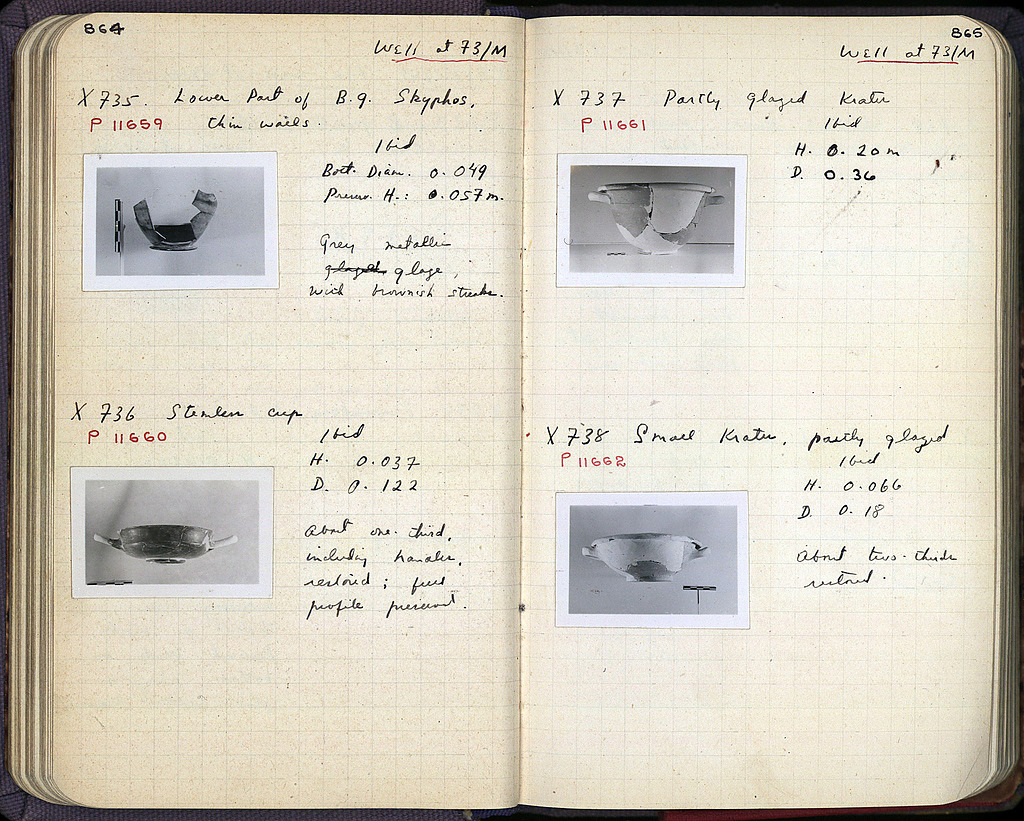 864
Well at 73/M
X 735. Lower Part of B.g. Skyphos,
P 11659 thin walls.
Ibid
Bott. Diam. 0.049
Preserv. H.: 0.057m.
Grey metallic
glaze,
with brownish streaks.
X 736 Stemless cup
P 11660
Ibid
H. 0.037
D. 0.122
About one-third,
including handles,
restored; full
profile preserved.
865
Well at 73/M
X 737 Partly glazed Krater
P 11661
Ibid
H. 0.20 m
D. 0.36
X 738 Small Krater, partly glazed
P 11662
Ibid
H. 0.066
D. 0.18
About two-thirds
restored.